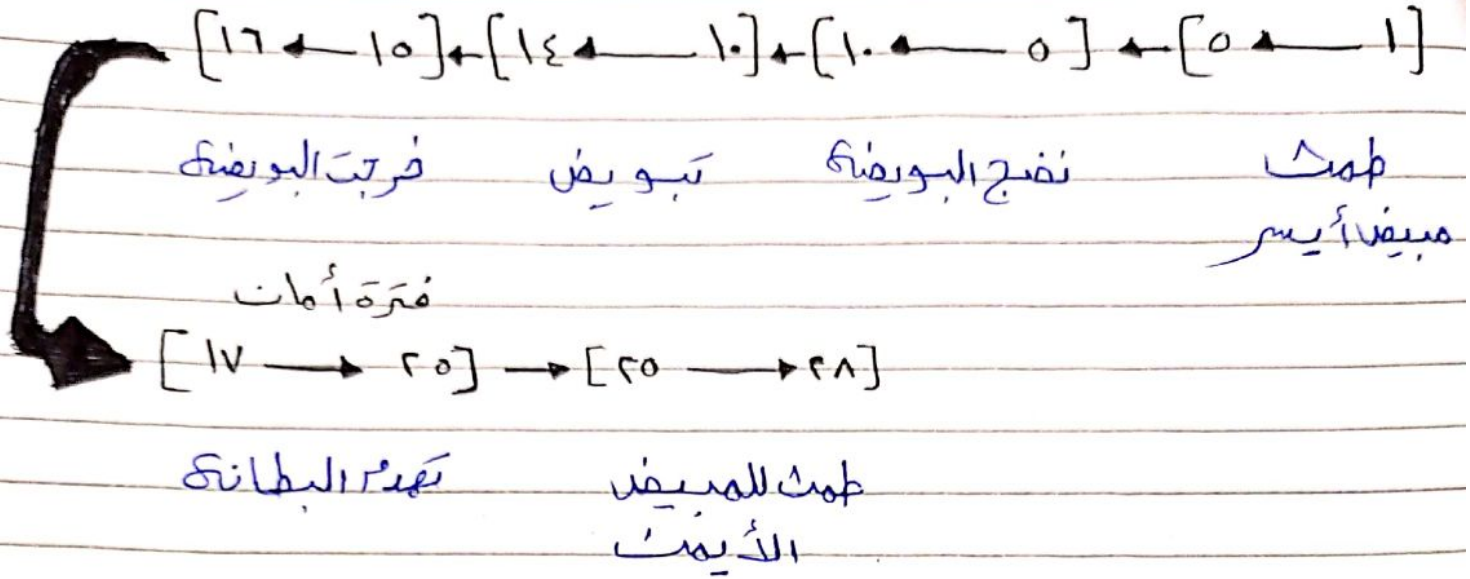 [١ ← ٥] ← [٥ ← ١٠] ← [١٠ ← ١٤] ← [١٥ ← ١٦]
طمث نضج البويضة تبويض خرجت البويضة
مبيض أيسر
فترة أمان
[١٧ → ٢٥] → [٢٥ → ٢٨]
تهدم البطانة طمث للمبيض
الأيمن